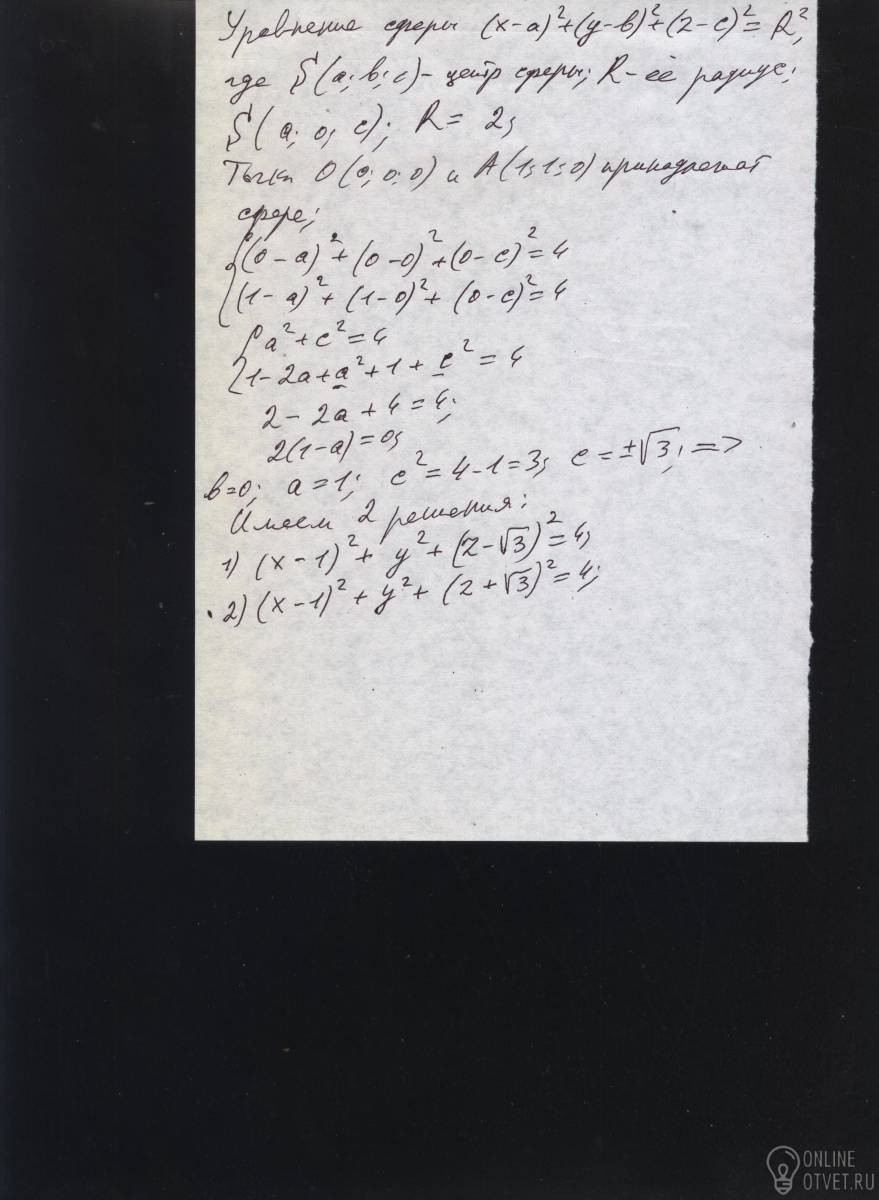 Уравнение сферы (x-a)²+(y-в)²+(z-c)²=R²,
где S(a; в; c) - центр сферы; R - её радиус;
S(a; 0; c); R = 2;
Точки O(0; 0; 0) и A(1; 1; 0) принадлежат
сфере;
{(0-a)²+(0-0)²+(0-c)²=4
{(1-a)²+(1-0)²+(0-c)²=4
{a²+c²=4
{1-2a+a²+1+c²=4
2-2a+4=4;
2(1-a)=0;
в=0; a=1; c²=4-1=3; c=±√3; =>
Имеем 2 решения:
1) (x-1)²+y²+(z-√3)²=4;
2) (x-1)²+y²+(z+√3)²=4;
ONLINE
OTVET.RU